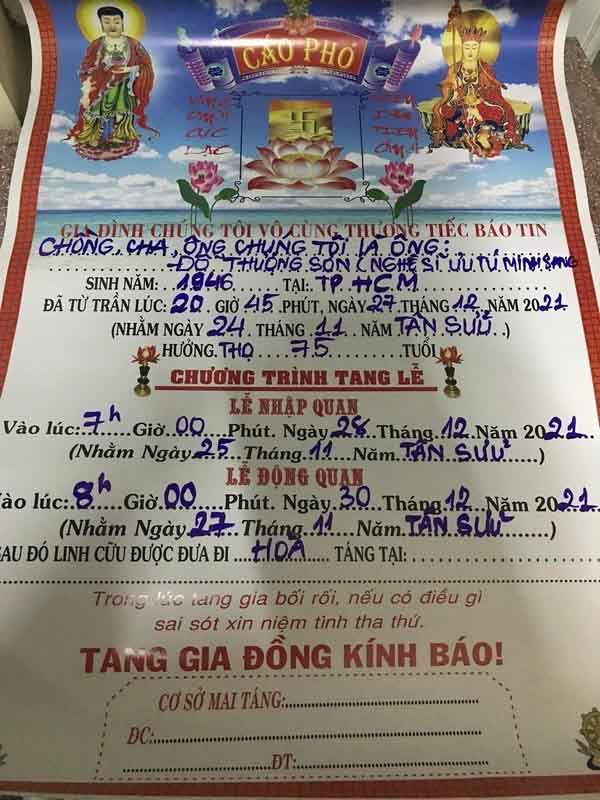 CÁO PHÓ
GIA ĐÌNH CHÚNG TÔI VÔ CÙNG THƯƠNG TIẾC BÁO TIN
CHỒNG, CHA, ÔNG CHÚNG TÔI LÀ ÔNG:
ĐỖ THƯỢNG SƠN (NGHỆ SĨ ƯU TÚ MINH SANG
SINH NĂM: 1946 TẠI: TP HCM
ĐÃ TỪ TRẦN LÚC: 20 GIỜ 45 PHÚT, NGÀY 27 THÁNG 12 NĂM 2021
(NHẰM NGÀY 24 THÁNG 11 NĂM TÂN SỬU)
HƯỞNG THỌ 75 TUỔI
CHƯƠNG TRÌNH TANG LỄ
LỄ NHẬP QUAN
Vào lúc: 7h Giờ 00 Phút. Ngày 28 Tháng 12 Năm 2021
(Nhằm Ngày 25 Tháng 11 Năm TÂN SỬU)
LỄ ĐỘNG QUAN
Vào lúc: 8h Giờ 00 Phút. Ngày 30 Tháng 12 Năm 2021
(Nhằm Ngày 27 Tháng 11 Năm TÂN SỬU)
SAU ĐÓ LINH CỮU ĐƯỢC ĐƯA ĐI HOẢ TÁNG TẠI:
Trong lúc tang gia bối rối, nếu có điều gì
sai sót xin niệm tình tha thứ.
TANG GIA ĐỒNG KÍNH BÁO!
CƠ SỞ MAI TÁNG:
ĐC:
ĐT: